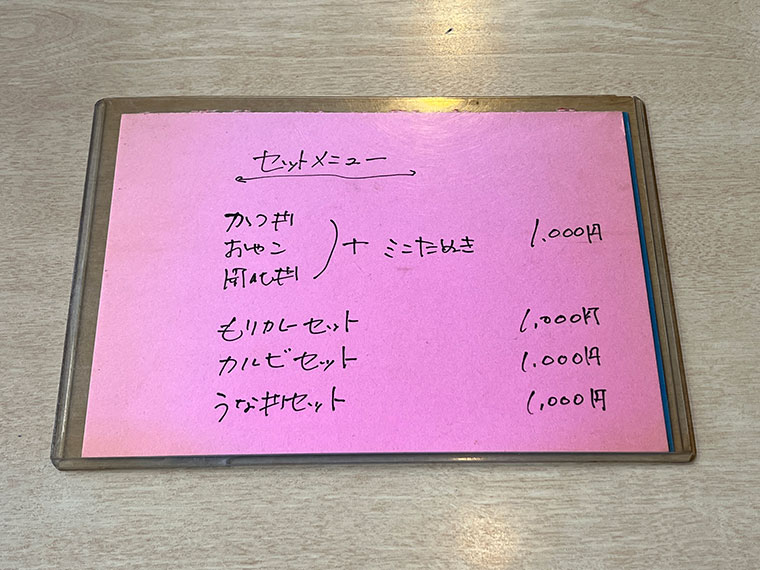 セットメニュー
かつ丼
おやこ
開化丼
+ ミニたぬき 1.000円
もりカレーセット 1,000円
カルビセット 1.000円
うな丼セット 1,000円